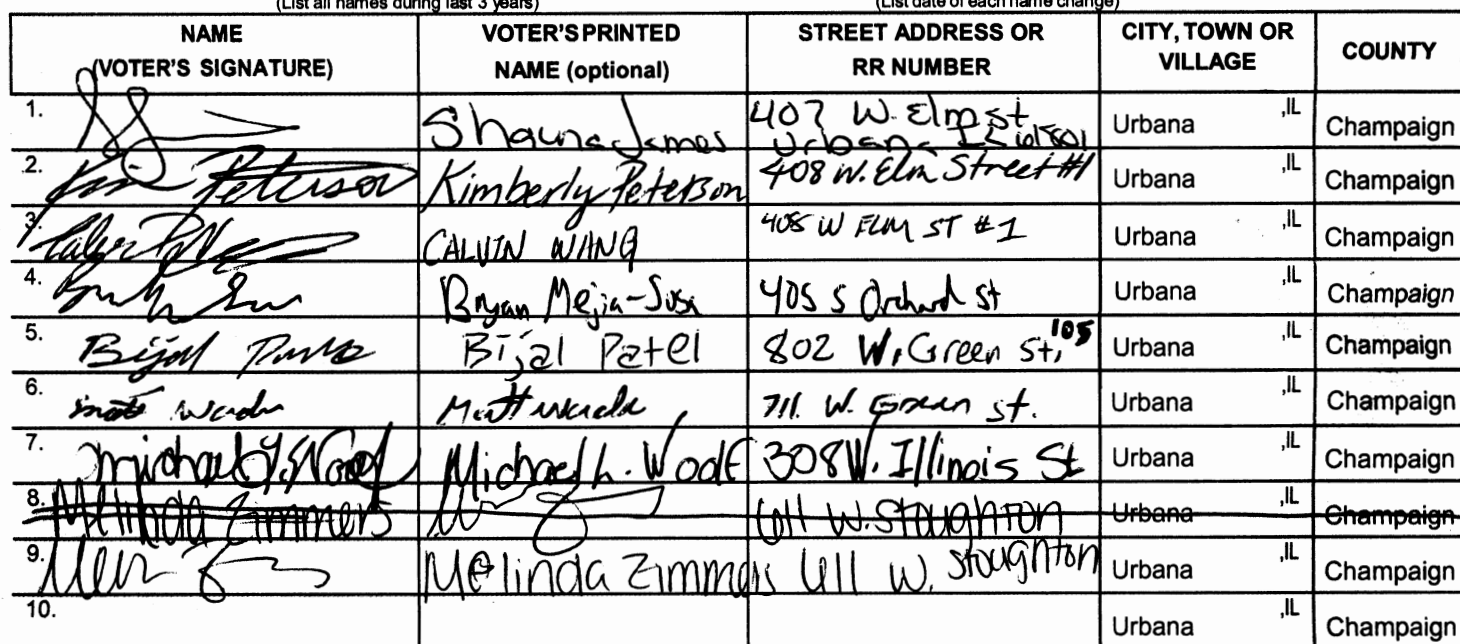 (List all names during last 3 years) (List date of each name change)
NAME (VOTER'S SIGNATURE) VOTER'S PRINTED NAME (optional) STREET ADDRESS OR RR NUMBER CITY, TOWN OR VILLAGE COUNTY
1. Shauna James 407 W. Elm st Urbana IL 61801 Urbana ,IL Champaign
2. Kim Peterson Kimberly Peterson 408 W. Elm Street #1 Urbana ,IL Champaign
3. CALVIN WANG 408 W ELM ST #1 Urbana ,IL Champaign
4. Bryan Mejia-Sosa 405 S Orchard St Urbana ,IL Champaign
5. Bijal Patel Bijal Patel 802 W. Green St. 105 Urbana ,IL Champaign
6. Matt 711 W. Green st. Urbana ,IL Champaign
7. Michael L. Woolf 308 W. Illinois St Urbana ,IL Champaign
8. Melinda Zimmers 611 W. Stoughton Urbana ,IL Champaign
9. Melinda Zimmers 611 W. Stoughton Urbana ,IL Champaign
10. Urbana ,IL Champaign